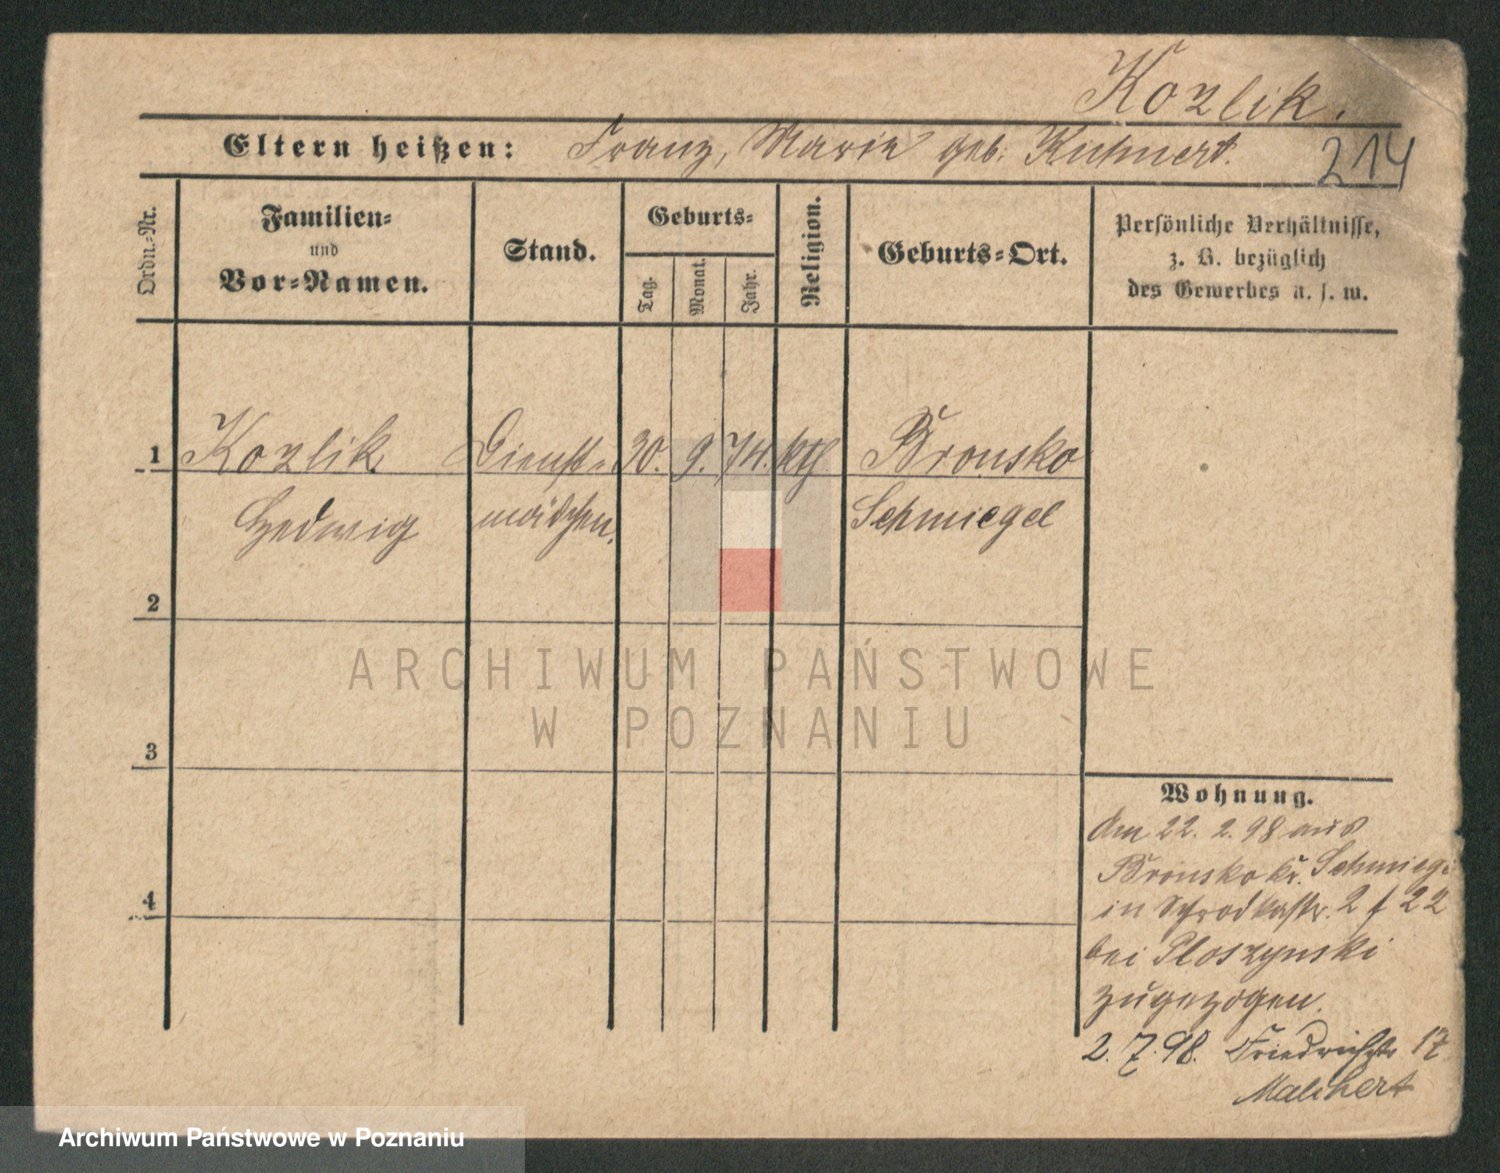 Kozlik.
Eltern heißen: Franz, Marie geb. Kuhnert.
214
Ordn.=Nr.
Familien=
und
Vor=Namen.
Stand.
Geburts=
Tag.
Monat.
Jahr.
Religion.
Geburts=Ort.
Persönliche Verhältnisse,
z. B. bezüglich
des Gewerbes u. s. w.
1 Kozlik Dienst= 30. 9. 74. kth Bronsko
Hedwig mädchen. Schmiegel
2
ARCHIWUM PAŃSTWOWE
W POZNANIU
3
4
Wohnung.
Am 22. 2. 98 aus
Bronsko kr. Schmieg
in 2 f 22
bei Ploszynski
zugezogen.
2. 7. 98. Friedrichstr 17
Archiwum Państwowe w Poznaniu